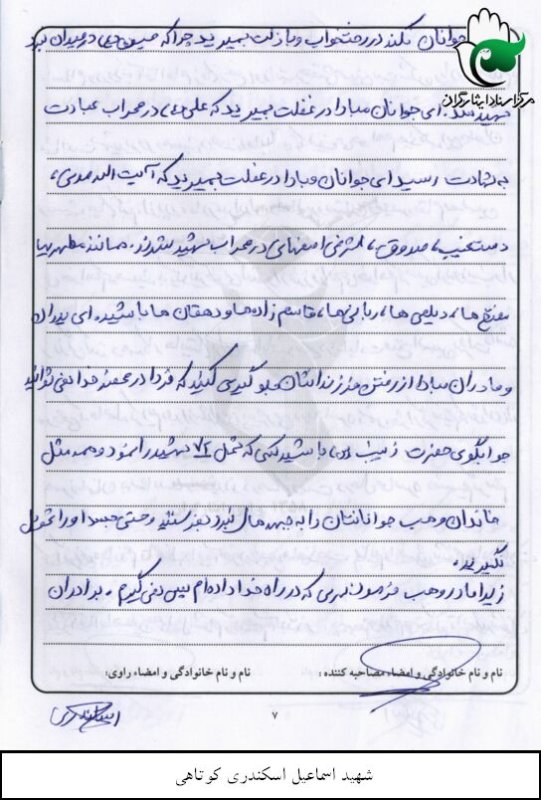 جوانان نکند در رختخواب و با ذلت بمیرید چرا که حسین (ع) در میدان نبرد
مرکز اسناد ایثارگران
شهید شد. ای جوانان مبادا در غفلت بمیرید که علی (ع) در محراب عبادت
به شهادت رسید ای جوانان و بادا در غفلت بمیرید که آیت الله مدنی،
دستغیب، صدوق، اشرفی اصفهانی در محراب شهید شدند. همانند مطهریها
مفتح ها، دیلمی ها، ربانی ها، قاسم زاده ها و دهقان ها باشید. ای پدران
و مادران مبادا از رفتن فرزندانتان جلوگیری کنید که فردا در محضر خدا نمی توانید
جوابگوی حضرت زینب (س) باشید کسی که تحمل ۷۲ شهید را نمود و همه مثل
خاندان وهب جوانانتان را به جبهه های نبرد بفرستید و حتی جسد او را تحویل
نگیرید.
زیرا مادر وهب فرمود سری که در راه خدا داده ام پس نمی گیرم. برادران
نام و نام خانوادگی و امضاء مصاحبه کننده :
نام و نام خانوادگی و امضاء راوی:
۷
شهید اسماعیل اسکندری کوتاهی